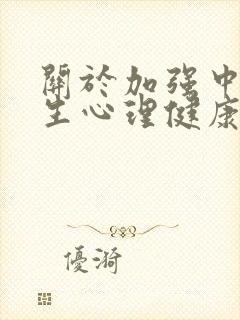 關於加强中
生心理健康
優漪